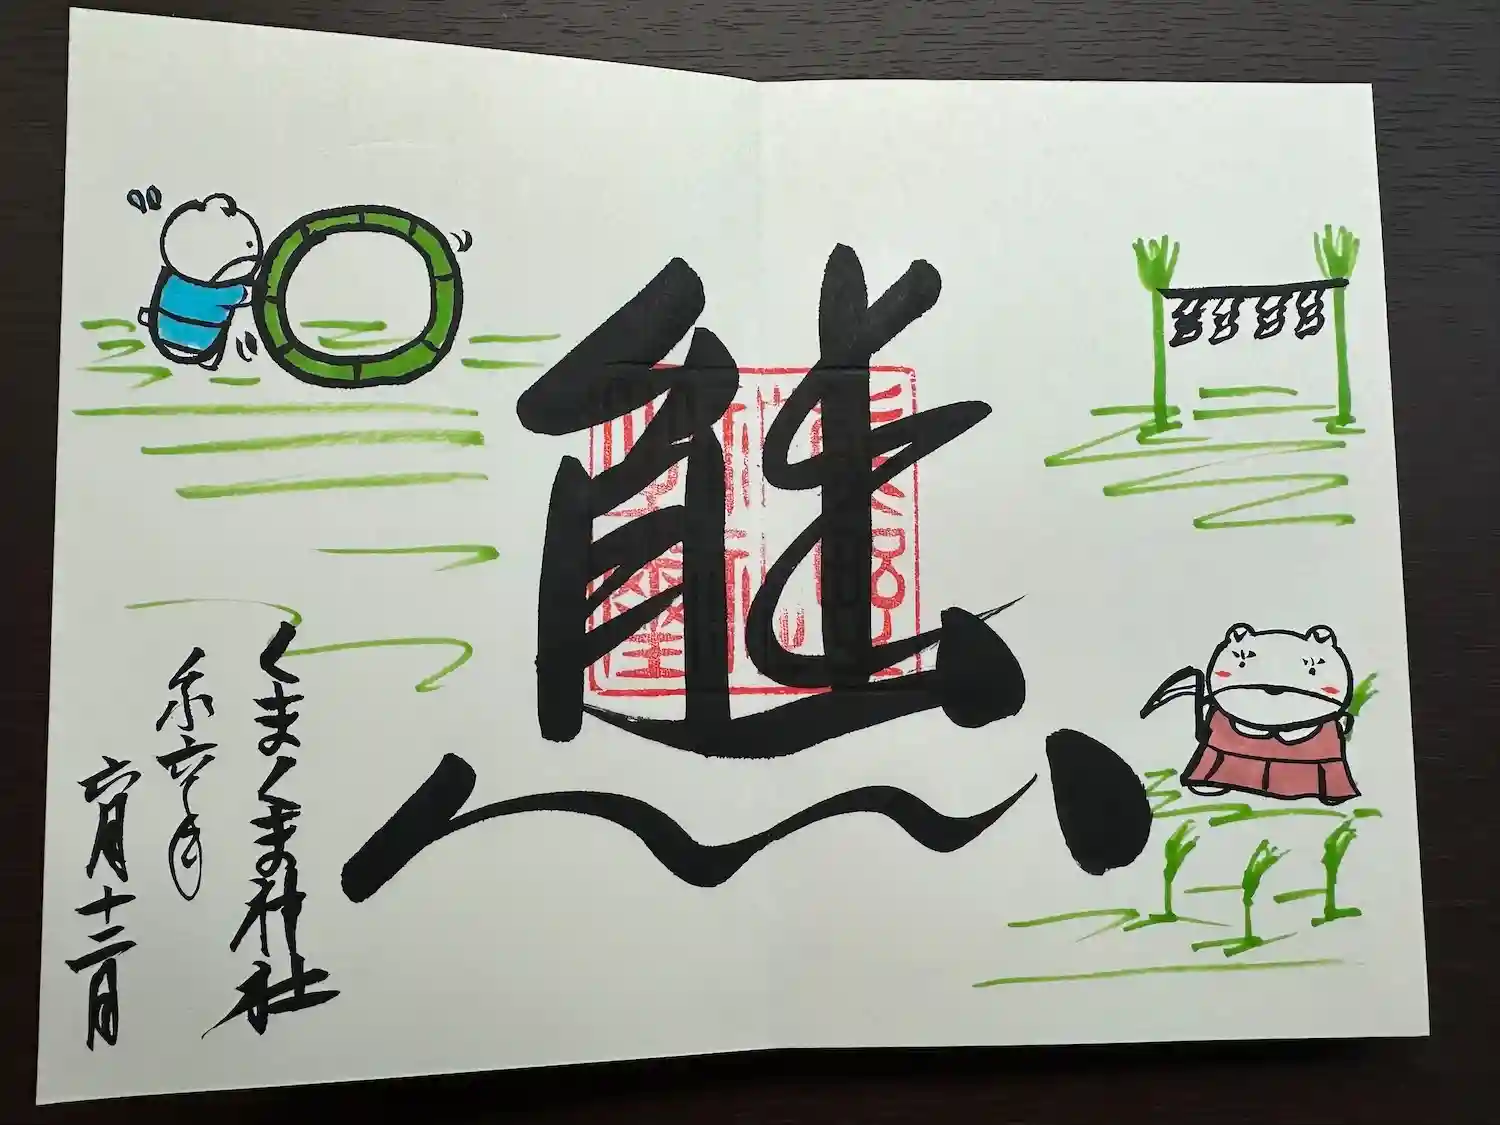 熊
くまくま神社
令和六年
六月十二日